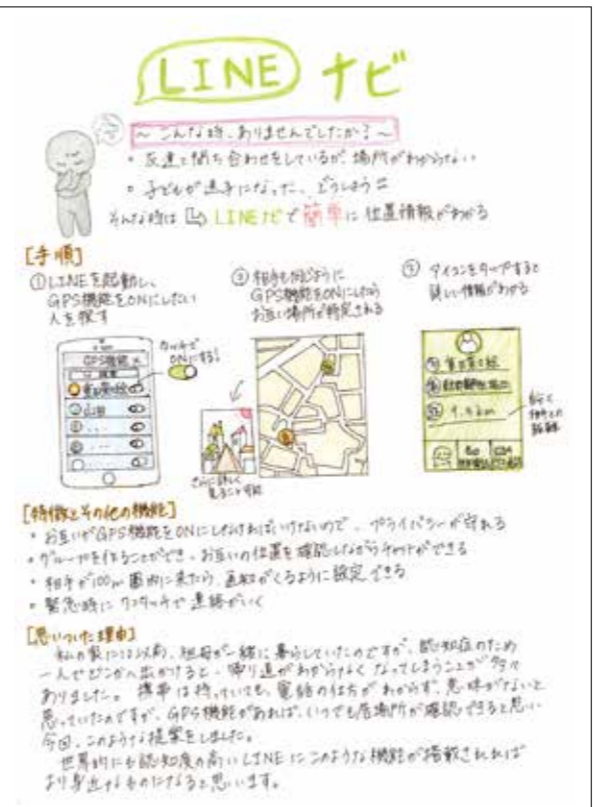 LINE ナビ
〜 こんな時、ありませんでしたか？ 〜
・友達と待ち合わせをしているが、場所がわからない
・子どもが迷子になった、どうしよう
そんな時は LINEナビで簡単に位置情報がわかる
[手順]
①LINEを起動し、
GPS機能をONにしたい
人を探す
GPS機能
検索
山田
タッチで
ONにする！
② 相手も同じように
GPS機能をONにしたら
お互い場所が特定される
さらに詳しく
見ること可能
③ アイコンをタップすると
詳しい情報がわかる
1.4km
自分と
相手との
距離
[特徴とその他の機能]
・お互いがGPS機能をONにしなければいけないので、プライバシーが守れる
・グループを作ることができ、お互いの位置を確認しながらチャットができる
・相手が100m圏内に来たら、通知がくるように設定できる
・緊急時にワンタッチで連絡がいく
[思いついた理由]
私の家には以前、祖母が一緒に暮らしていたのですが、認知症のため
一人でどこかへ出かけると、帰り道がわからなくなってしまうことが多々
ありました。携帯は持っていても、電話の仕方がわからず、意味がないと
思っていたのですが、GPS機能があれば、いつでも居場所が確認できると思い
今回、このような提案をしました。
世界的にも認知度の高いLINEにこのような機能が搭載されれば
より身近なものになると思います。